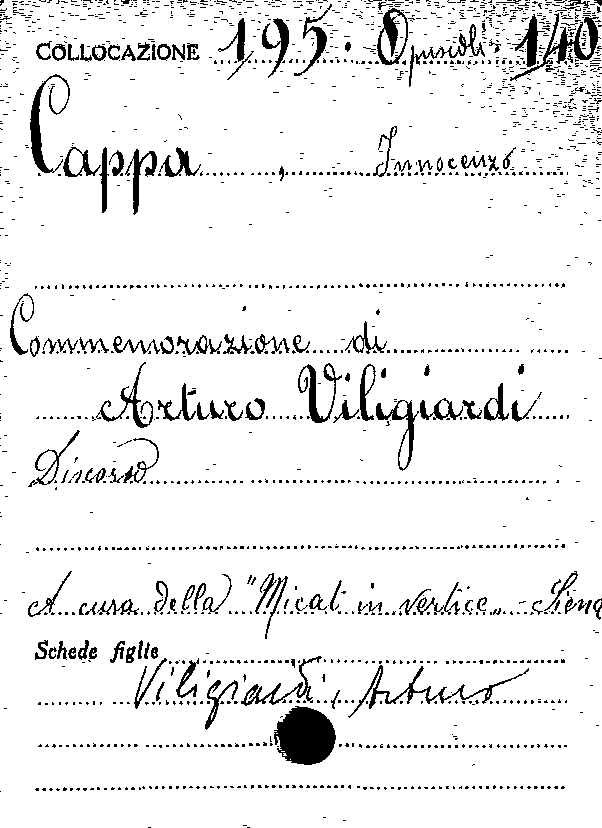 COLLOCAZIONE 195. Opuscoli. 140
Cappa, Innocenzo
Commemorazione di
Arturo Viligiardi
Discorso
A cura della "Micat in vertice" - Siena
Schede figlie
Viligiardi, Arturo